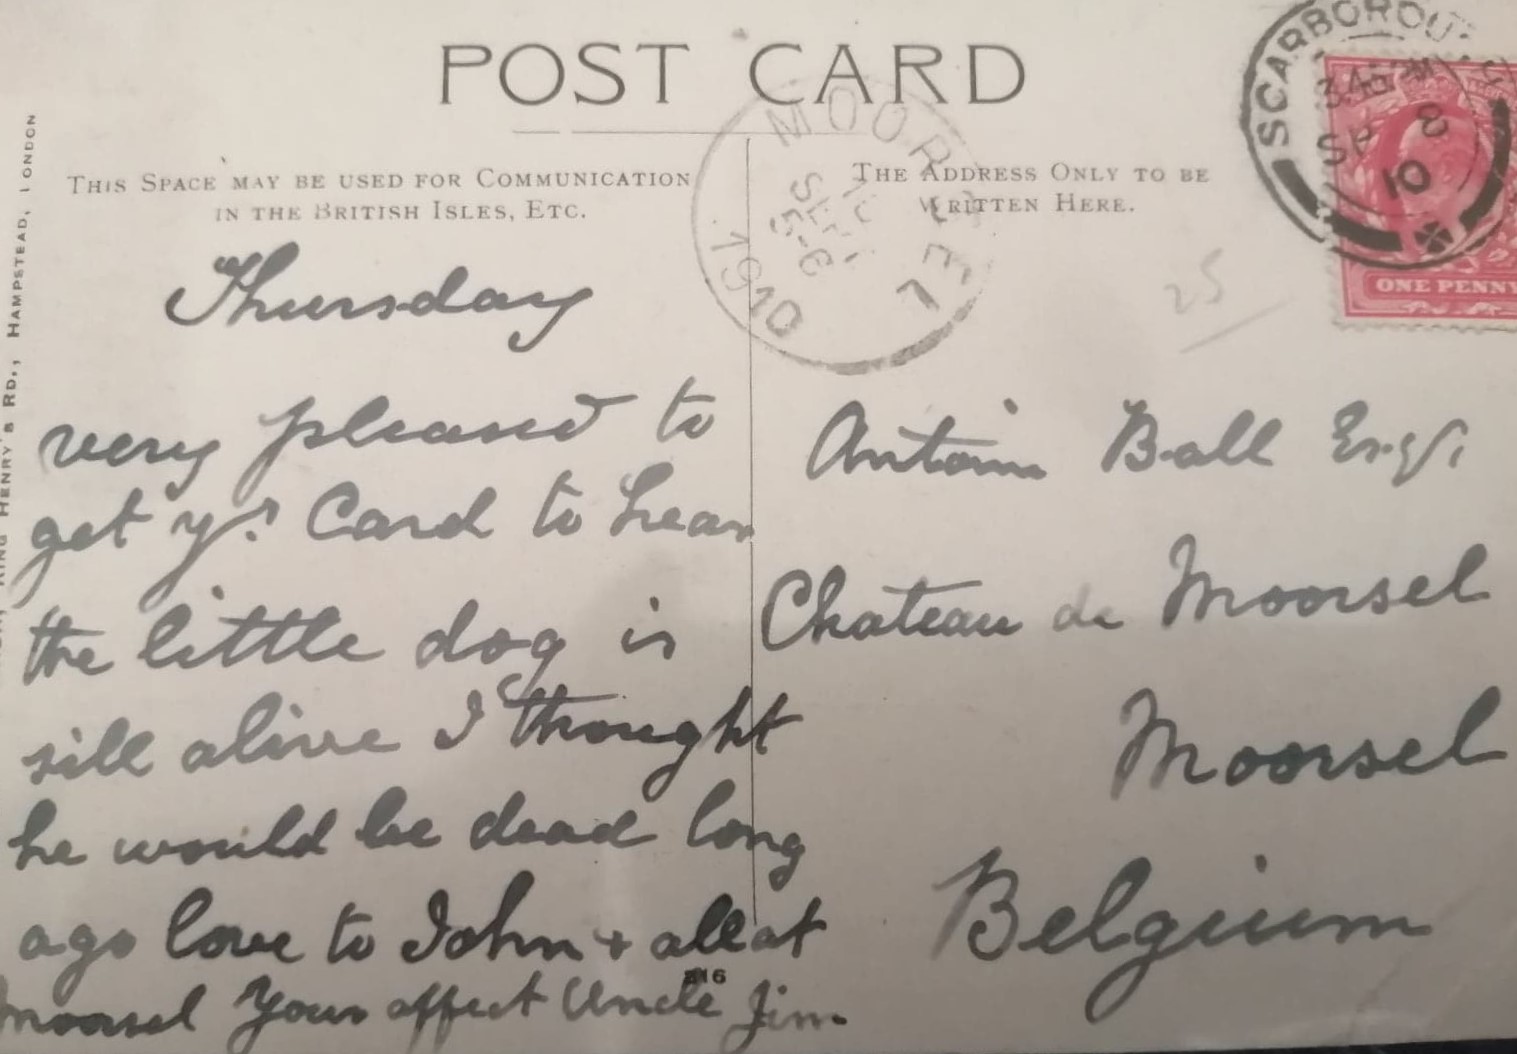 POST CARD
THIS SPACE MAY BE USED FOR COMMUNICATION
IN THE BRITISH ISLES, ETC.
THE ADDRESS ONLY TO BE
WRITTEN HERE.
HENRY'S RD., HAMPSTEAD, LONDON
SCARBOROU
SP 8
10
ONE PENNY
MOOR
SEPT
5-6
1910
25
Thursday
very pleased to
get yr. Card to hear
the little dog is
sill alive I thought
he would be dead long
ago love to John + all at
moorsel Your affect Uncle Jim
Antoine Ball Esq.
Chateau de Moorsel
Moorsel
Belgium